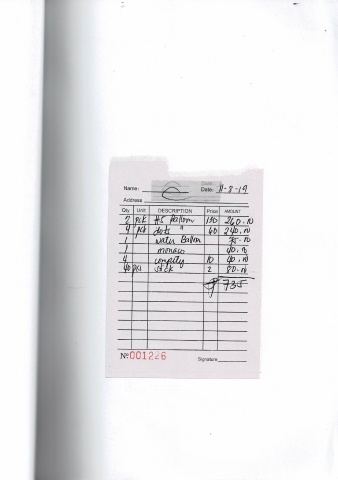 Name:
Date: 11-8-19
Address
Qty Unit DESCRIPTION Price AMOUNT
2 pck #5 Balloon 130 260.00
4 pck dots " 60 240.00
1 water Balloon 75.00
1 40.00
4 10 40.00
40 pcs stick 2 80.00
735
No 001226 Signature